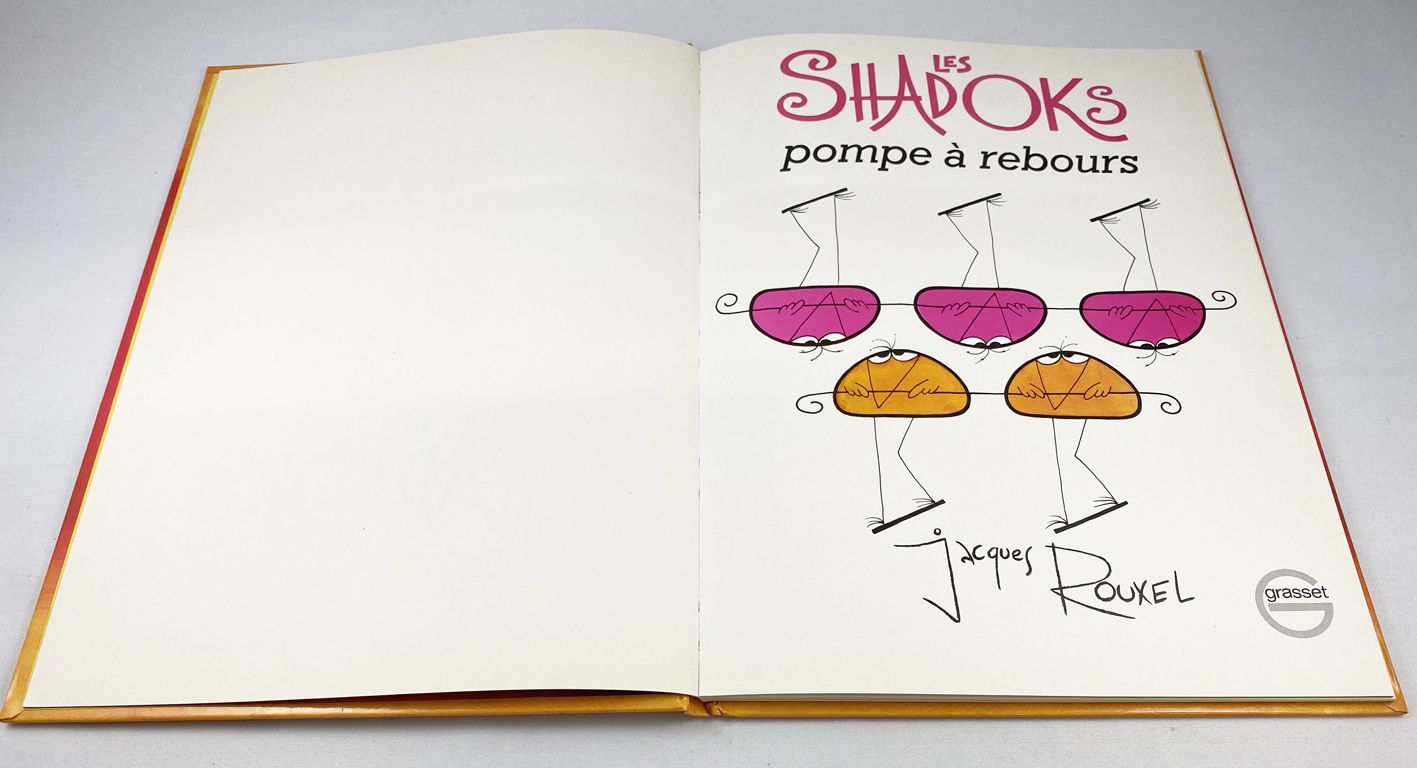 LES
SHADOKS
pompe à rebours
jacques ROUXEL
grasset